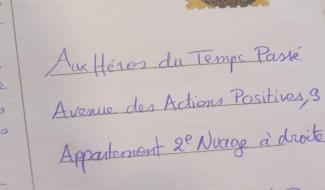 Aux Héros du Temps Passé
Avenue des Actions Positives, 9
Appartement 2e Nuage à droite